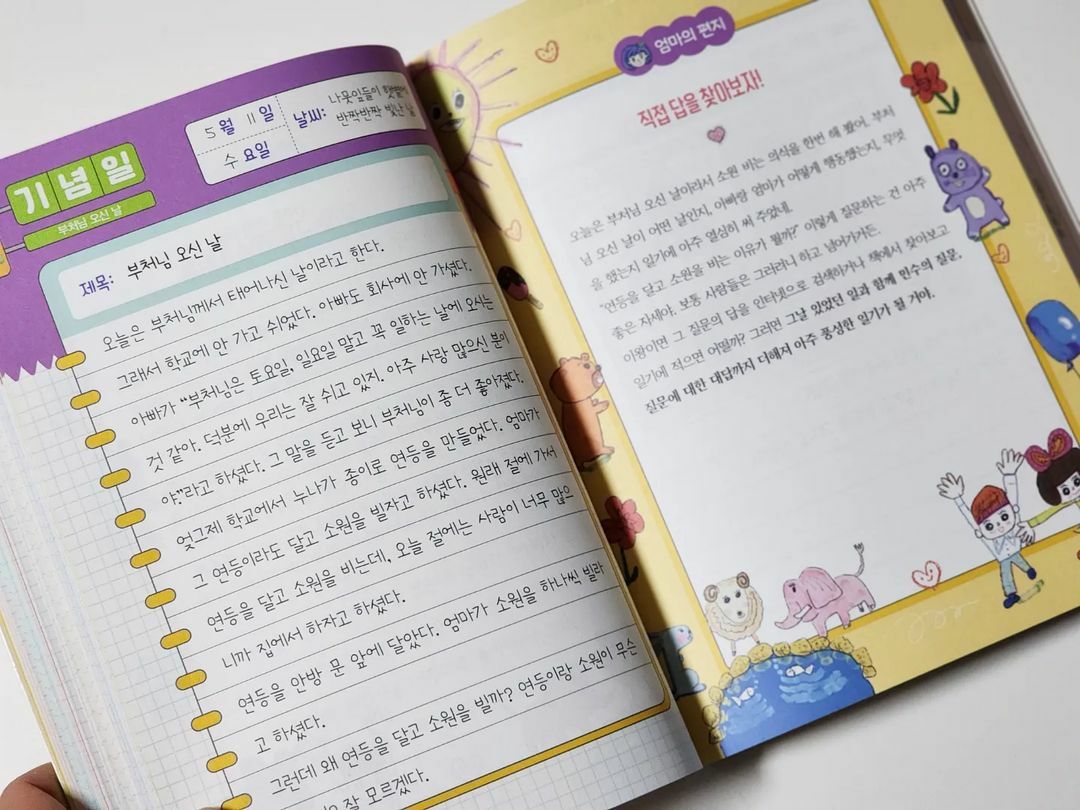 5월 11일
수요일
날씨: 나뭇잎들이 햇빛에
반짝반짝 빛난 날
기념일
부처님 오신 날
제목: 부처님 오신 날
오늘은 부처님께서 태어나신 날이라고 한다.
그래서 학교에 안 가고 쉬었다. 아빠도 회사에 안 가셨다.
아빠가 “부처님은 토요일, 일요일 말고 꼭 일하는 날에 오시는
것 같아. 덕분에 우리는 잘 쉬고 있지. 아주 사랑 많으신 분이
야”라고 하셨다. 그 말을 듣고 보니 부처님이 좀 더 좋아졌다.
엊그제 학교에서 누나가 종이로 연등을 만들었다. 엄마가
그 연등이라도 달고 소원을 빌자고 하셨다. 원래 절에 가서
연등을 달고 소원을 비는데, 오늘 절에는 사람이 너무 많으
니까 집에서 하자고 하셨다.
연등을 안방 문 앞에 달았다. 엄마가 소원을 하나씩 빌라
고 하셨다.
그런데 왜 연등을 달고 소원을 빌까? 연등이랑 소원이 무슨
잘 모르겠다.
엄마의 편지
직접 답을 찾아보자!
오늘은 부처님 오신 날이라서 소원 비는 의식을 한번 해 봤어. 부처
님 오신 날이 어떤 날인지, 아빠랑 엄마가 어떻게 행동했는지, 무엇
을 했는지 일기에 아주 열심히 써 주었네.
“연등을 달고 소원을 비는 이유가 뭘까?” 이렇게 질문하는 건 아주
좋은 자세야. 보통 사람들은 그러려니 하고 넘어가거든.
이왕이면 그 질문의 답을 인터넷으로 검색하거나 책에서 찾아보고
일기에 적으면 어떨까? 그러면 그날 있었던 일과 함께 민수의 질문,
질문에 대한 대답까지 더해져 아주 풍성한 일기가 될 거야.